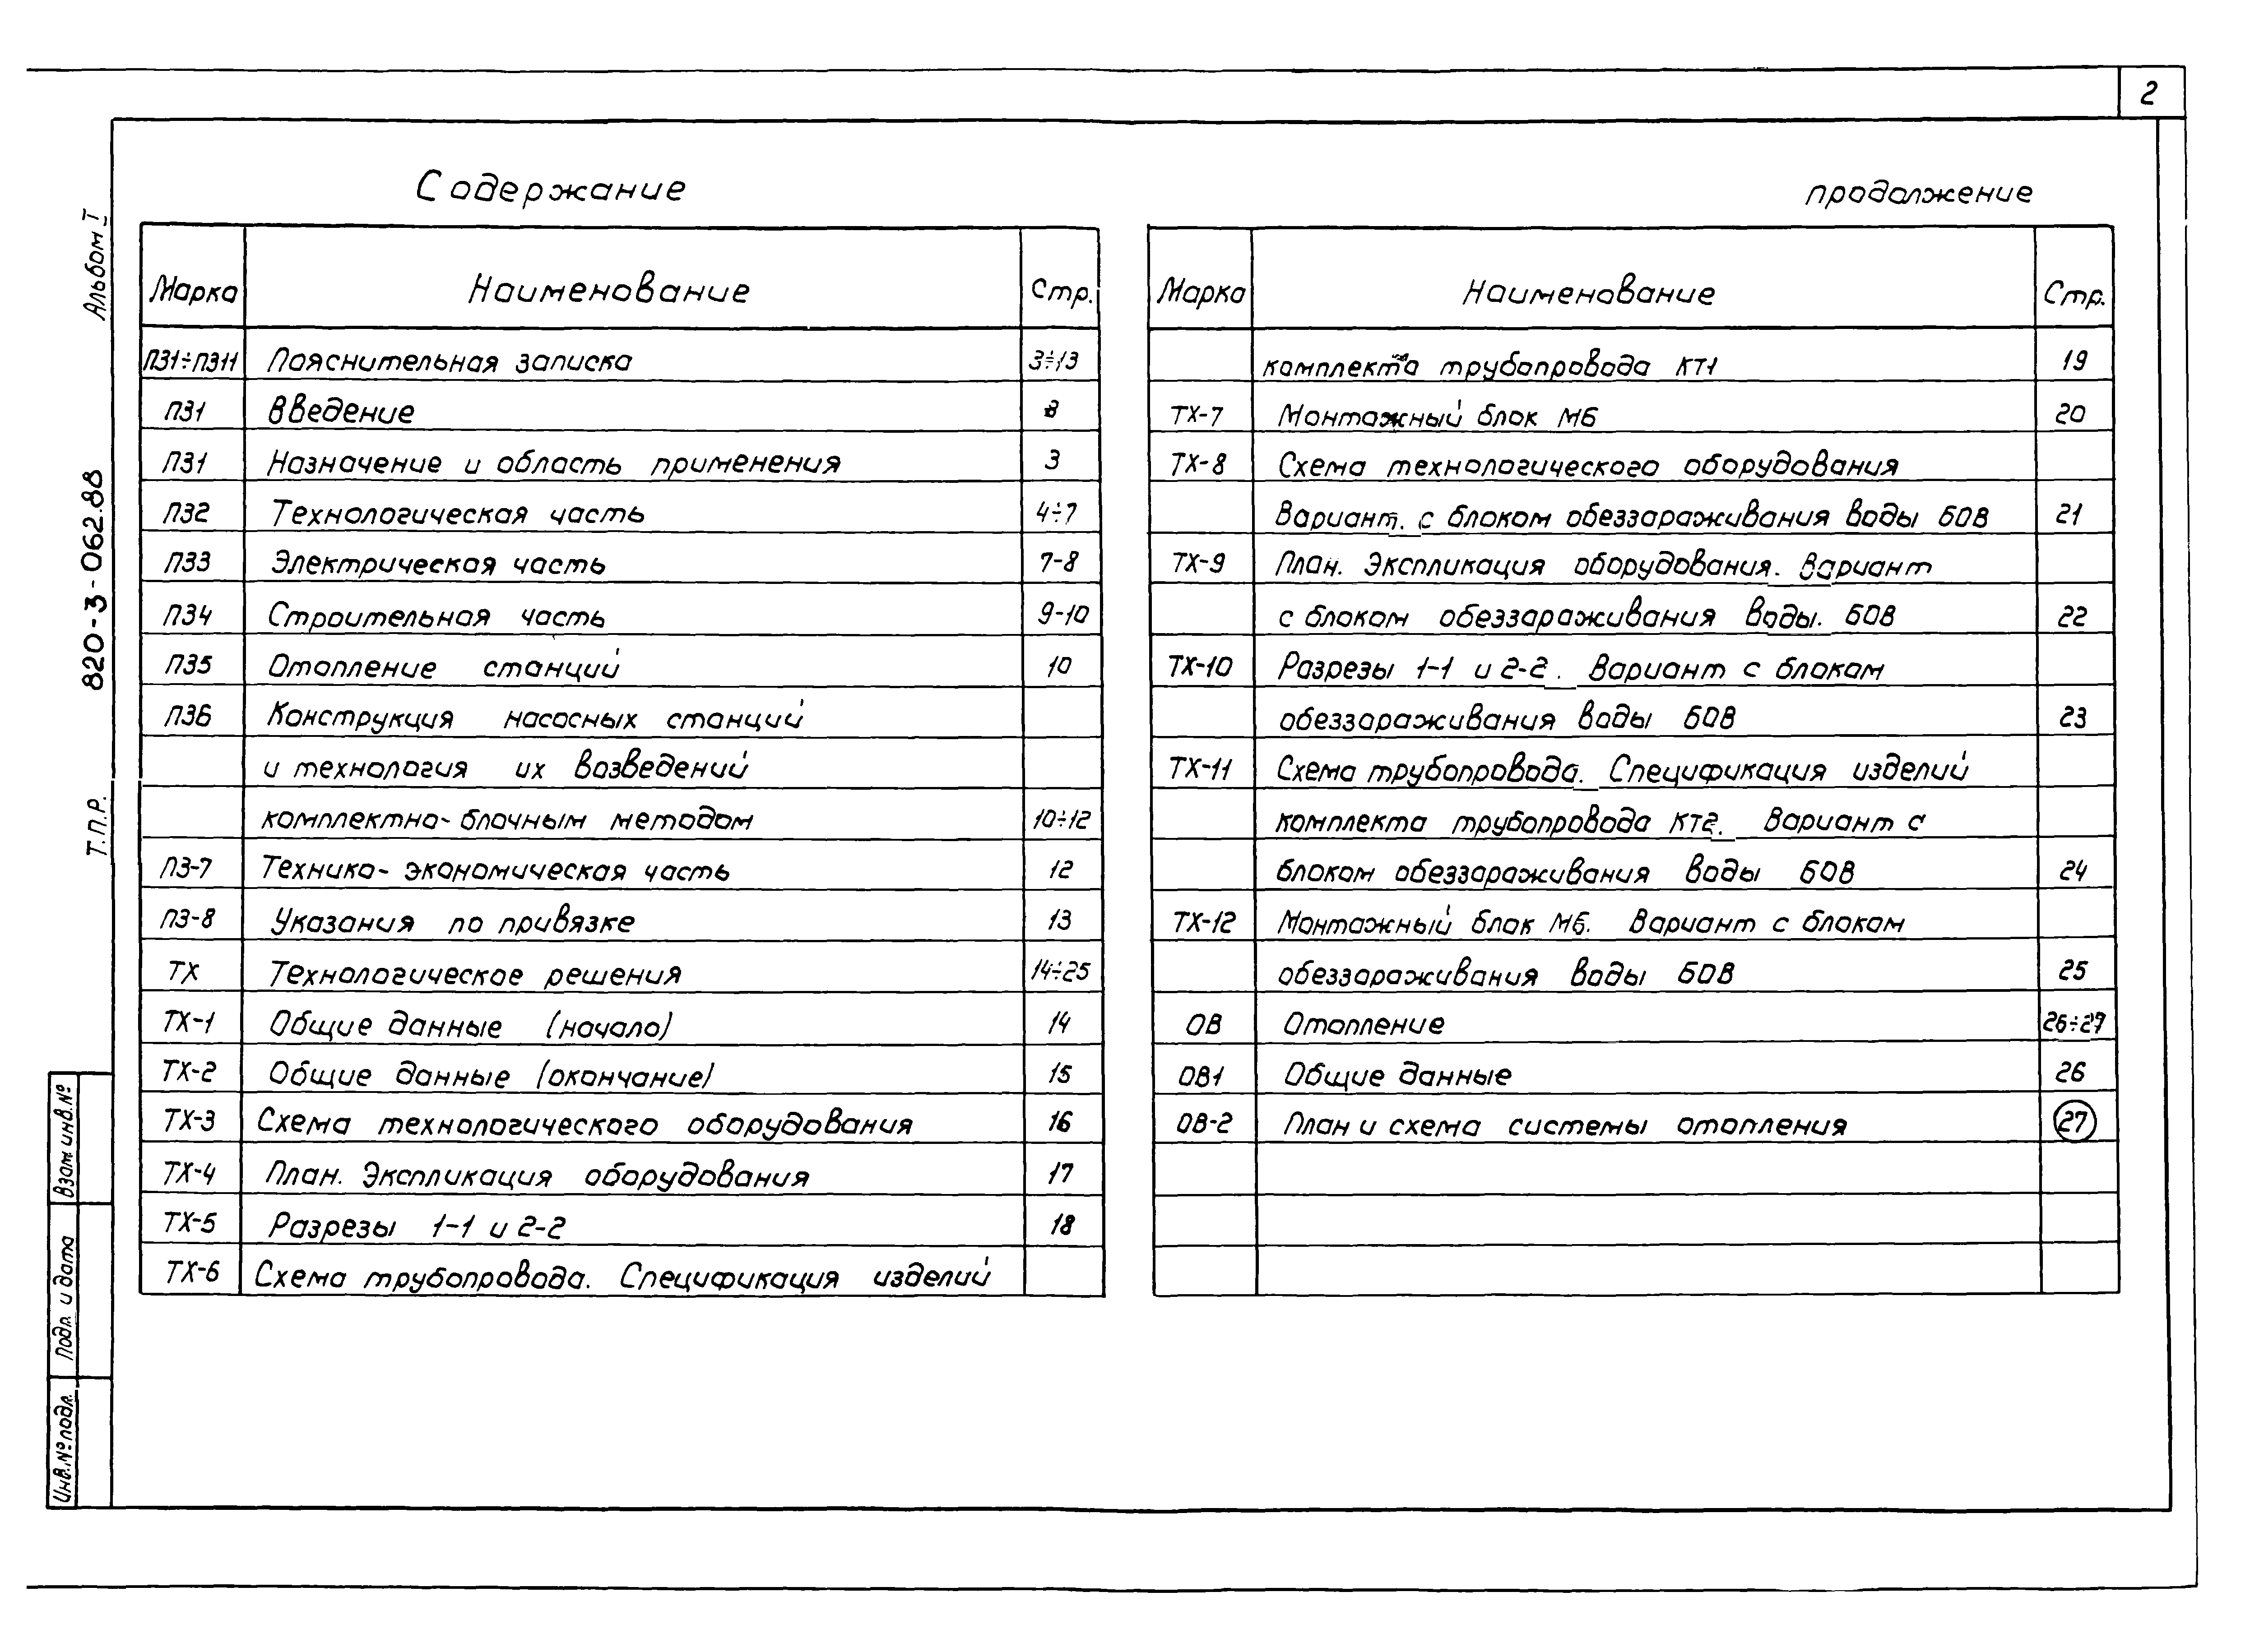 2
Содержание
Марка Наименование Стр.
ПЗ1÷ПЗ11 Пояснительная записка 3÷13
ПЗ1 Введение 3
ПЗ1 Назначение и область применения 3
ПЗ2 Технологическая часть 4÷7
ПЗ3 Электрическая часть 7-8
ПЗ4 Строительная часть 9-10
ПЗ5 Отопление станций 10
ПЗ6 Конструкция насосных станций
и технология их возведений
комплектно-блочным методом 10÷12
ПЗ-7 Технико-экономическая часть 12
ПЗ-8 Указания по привязке 13
ТХ Технологическое решения 14÷25
ТХ-1 Общие данные (начало) 14
ТХ-2 Общие данные (окончание) 15
ТХ-3 Схема технологического оборудования 16
ТХ-4 План. Экспликация оборудования 17
ТХ-5 Разрезы 1-1 и 2-2 18
ТХ-6 Схема трубопровода. Спецификация изделий
продолжение
Марка Наименование Стр.
комплекта трубопровода КТ1 19
ТХ-7 Монтажный блок МБ 20
ТХ-8 Схема технологического оборудования
Вариант. с блоком обеззараживания воды БОВ 21
ТХ-9 План. Экспликация оборудования. Вариант
с блоком обеззараживания воды. БОВ 22
ТХ-10 Разрезы 1-1 и 2-2. Вариант с блокам
обеззараживания воды БОВ 23
ТХ-11 Схема трубопровода. Спецификация изделий
комплекта трубопровода КТ2. Вариант с
блоком обеззараживания воды БОВ 24
ТХ-12 Монтажный блок МБ. Вариант с блокам
обеззараживания воды БОВ 25
ОВ Отопление 26÷27
ОВ1 Общие данные 26
ОВ-2 План и схема системы отопления 27
Альбом I
820-3-062.88
Т.П.Р.
Взам. инв. №
Подп. и дата
Инв. № подл.